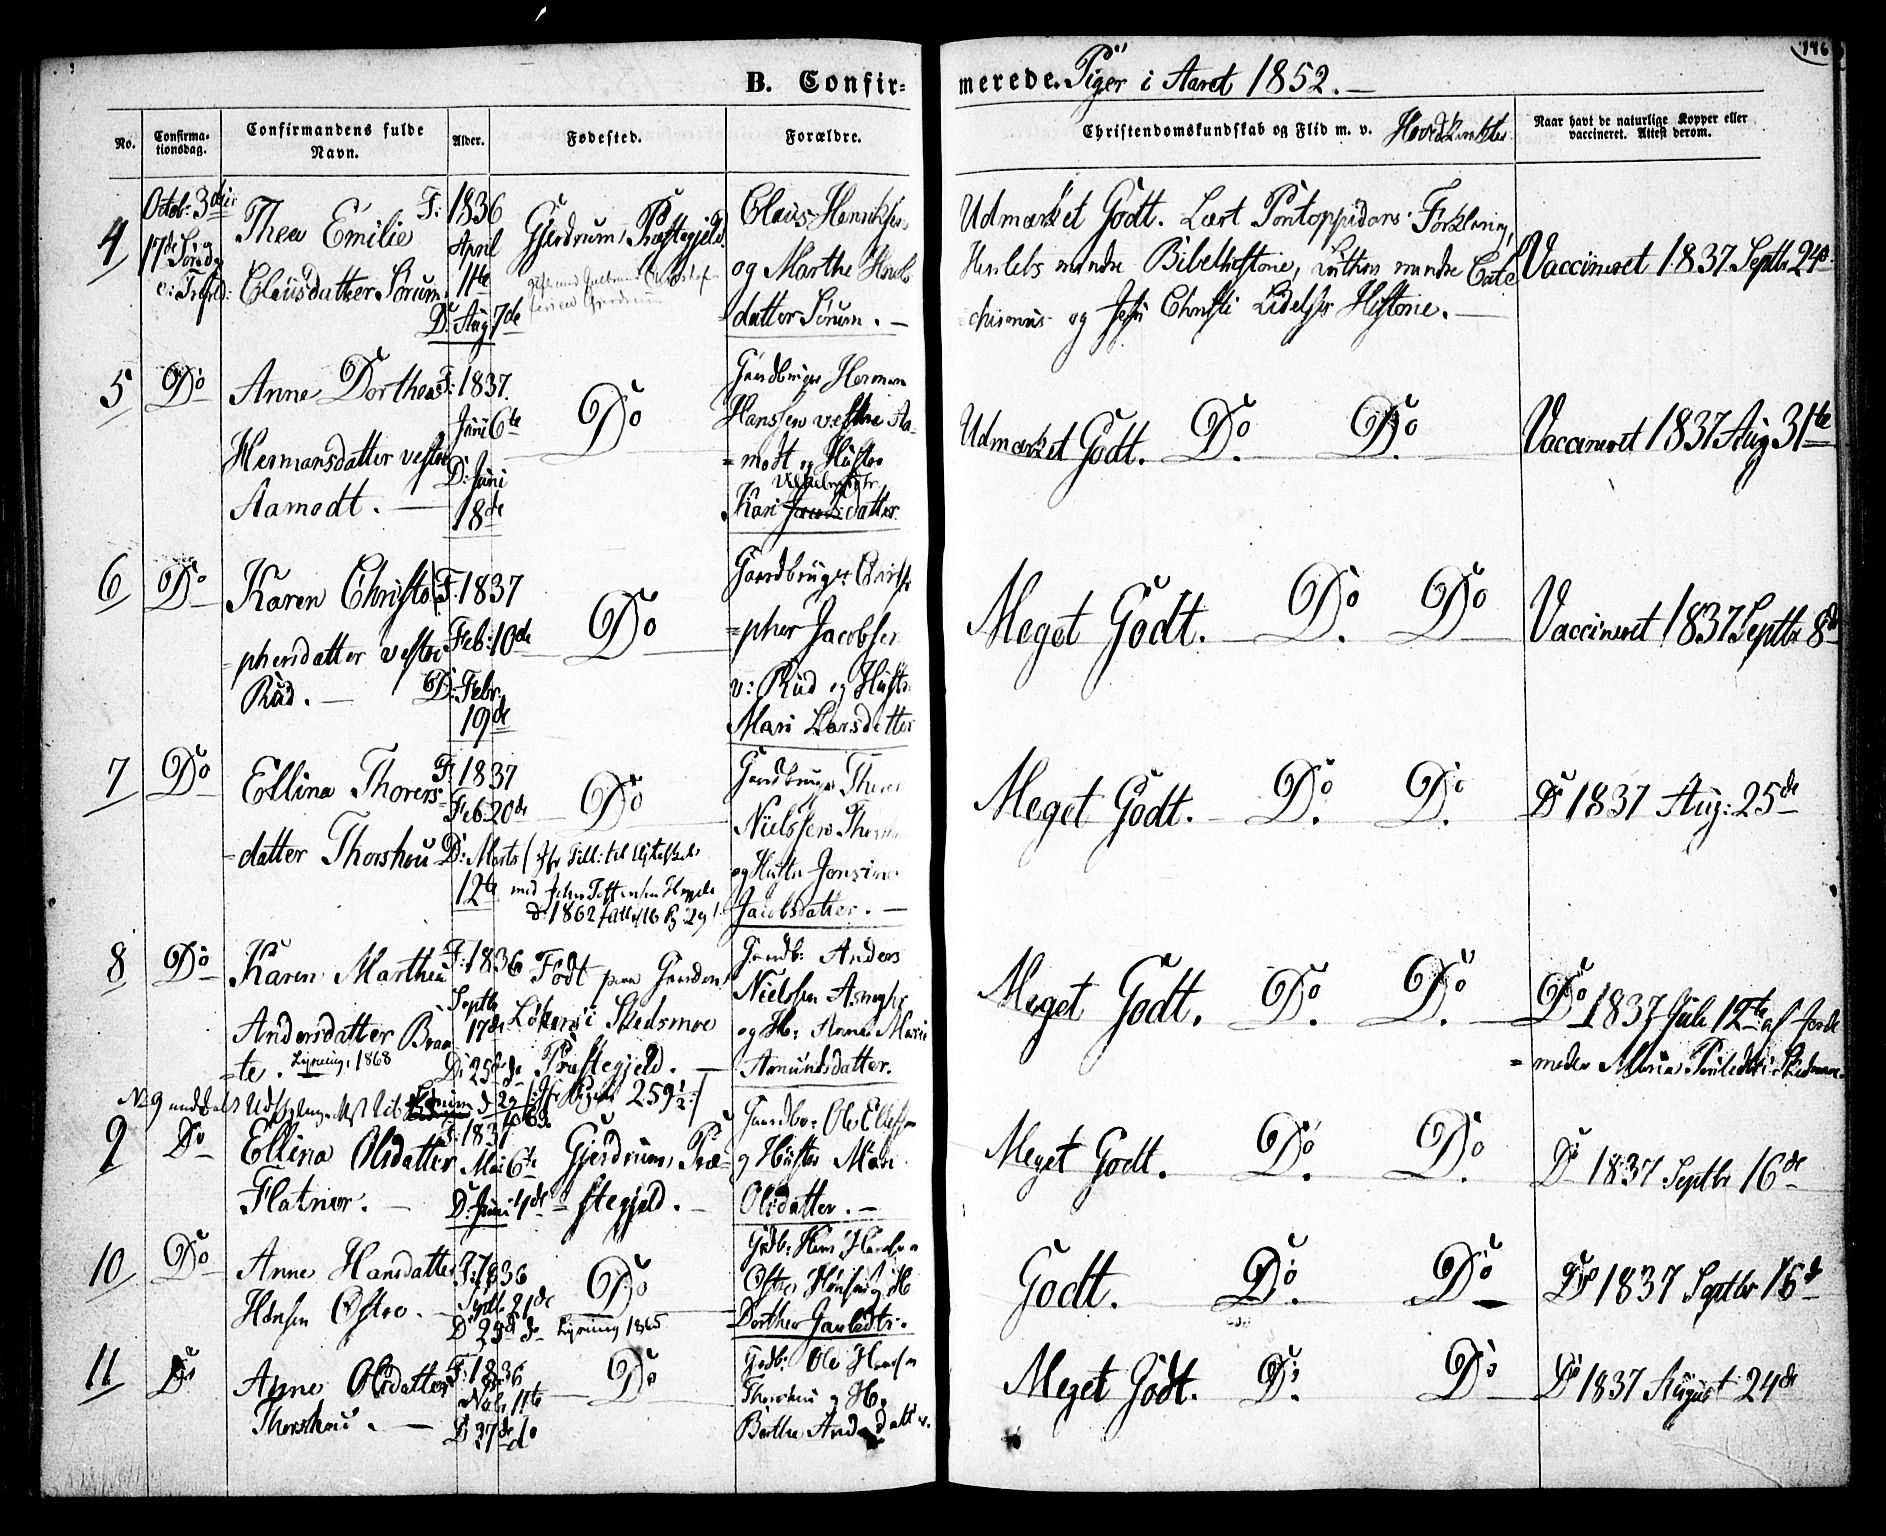 146
B. Confir-
merede. Piger i Aaret 1852. —
No.
Confirma-
tionsdag.
Confirmandens fulde
Navn.
Alder.
Fødested.
Forældre.
Christendomskundskab og Flid m. v.
Naar havt de naturlige Kopper eller
vaccineret. Attest derom.
4
Octob: 3die
17de Søndag
e: Trefold:
Thea Emilie
Clausdatter Sørum
F: 1836
April
11te
D: Aug 7de
Gjerdrums Præstegjeld.
Claus Henriksen
og Marthe
datter Sørum. —
Udmærket Godt. Lært Pontoppidans Forklaring,
Herslebs mindre Bibelhistorie, Luthers mindre Cate
chismus og Jesu Christi Lidelses Historie. —
Vaccineret 1837 Septbr 24de
5
Do
Anne Dorthea
Hermansdatter vestre
Aamodt. —
F: 1837.
Juni 6te
D: Juni
18de
Do
Gaardbruger Herman
Hanssen vestre Aa-
=modt og Hustro
Kari datter.
Udmærket Godt. Do. Do.
Vaccineret 1837 Aug 31te
6
Do
Karen Christo
=phersdatter vestre
Rud. —
F. 1837
Feb: 10de
D: Febr.
19de
Do
Gaardbruger Christo
=pher Jacobsen
v: Rud og Hustro
Mari Larsdatter
Meget Godt. Do. Do
Vaccineret 1837 Septbr 8de
7
Do
Ellina Thorers
=datter Thorshou
F: 1837
Feb. 20de
D: Marts
12te
Do
1862
Gaardbruger Thorer
Nielssen
og Hustro Jonsine
Jacobsdatter. —
Meget Godt. Do. Do.
Do 1837 Aug: 25de
8
Do
Karen Marthea
Andersdatter Braa
=te. Lysning 1868
F: 1836
Septbr
17de
D: 25de do
Født paa Gaarden
i Skedsmoe
Præstegjeld. —
Gaardb: Anders
Nielssen
og H: Anne Marie
Amundsdatter.
Meget Godt. Do. Do.
Do 1837 Juli 12te af Jorde
=moder Maria i Skedsmoe.
9
Do
Ellina Olsdatter
Flatner. —
F: 1837
Mai 6te
D: Juni 4de
Gjerdrums Præ-
=stegjeld. —
Gaardbr: Ole
og Hustro Mari
Olsdatter. —
Meget Godt. Do. Do.
Do 1837 Septbr 16de
10
Do
Anne Hansdatter
Hønsen Østre. —
F: 1836
Septbr 21de
D 29de do
Do
Lysning 1865
Gdb: Hans
Østre Hønsen og H
Dorthea
Godt. Do. Do
Do 1837 Septbr 16de
11
Do
Anne Olsdatter
Thorshou. —
F: 1836
Novbr 11te
D 27de do
Do
Gdb: Ole
Thorshou og H.
Berthe
Meget Godt. Do. Do
Do 1837 August 24de